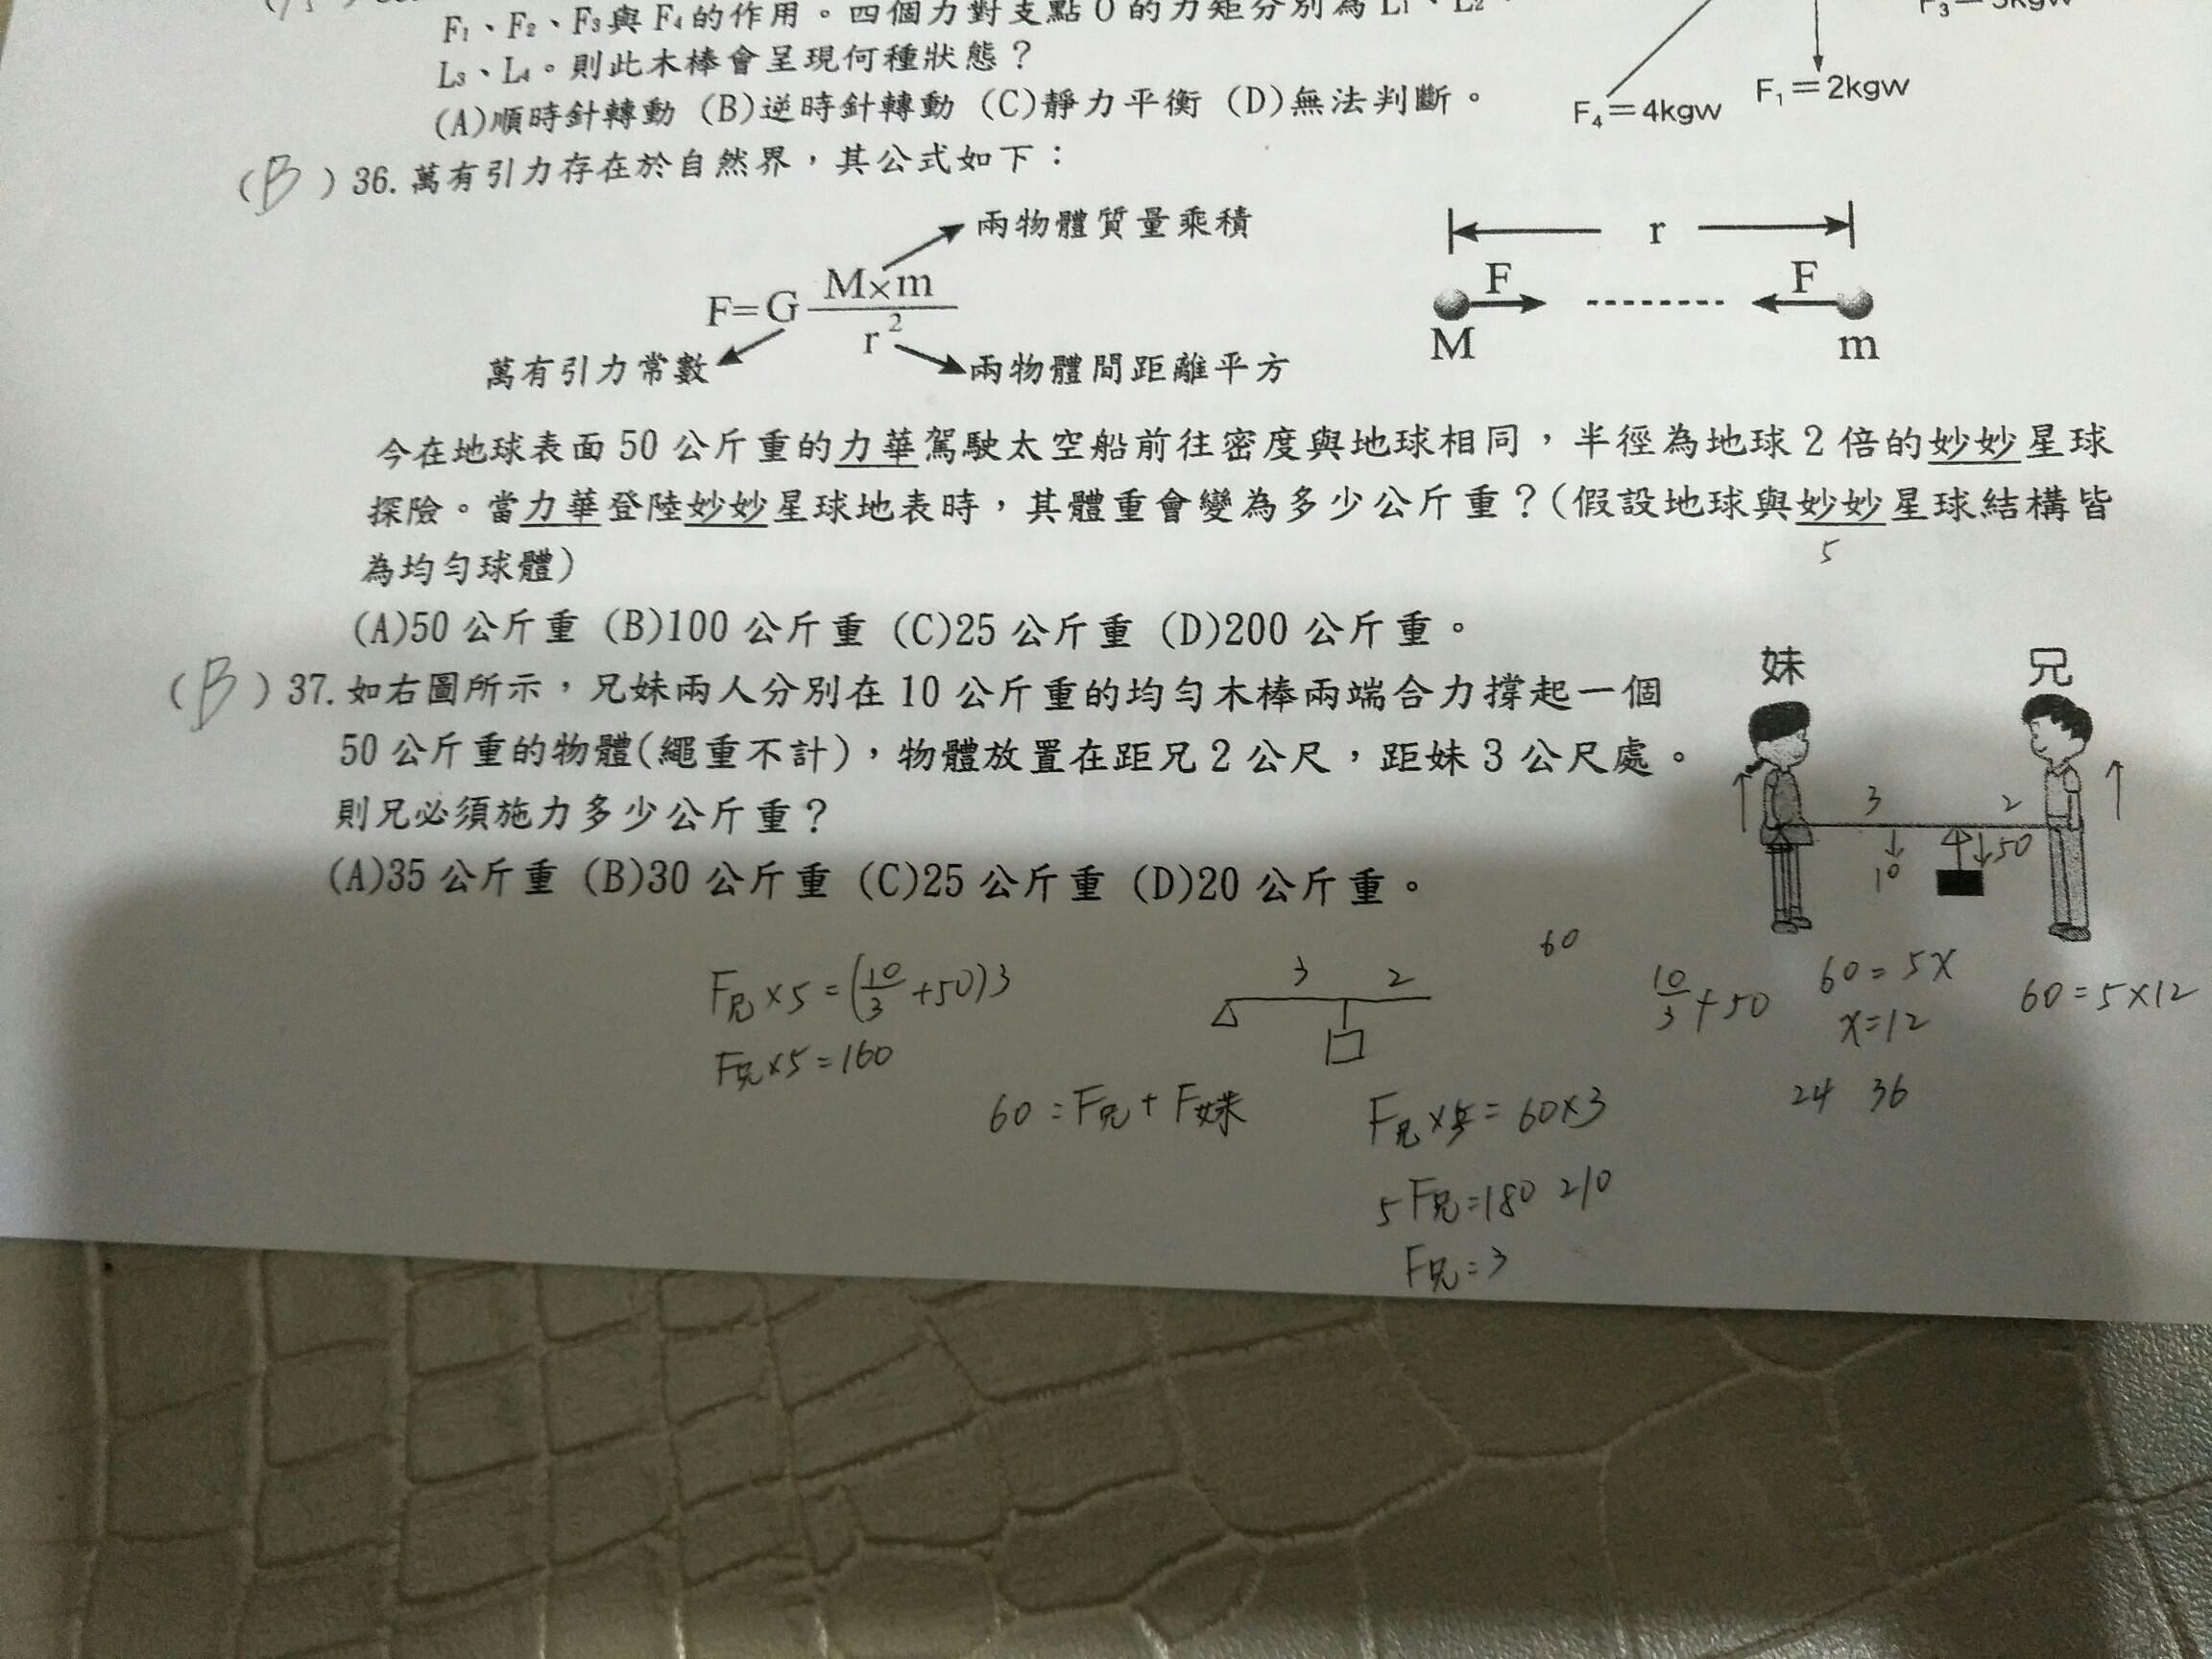 F₁、F₂、F₃與F₄的作用。四個力對支點O的力矩分別為L₁、L₂、
L₃、L₄。則此木棒會呈現何種狀態？
(A)順時針轉動 (B)逆時針轉動 (C)靜力平衡 (D)無法判斷。
F₄＝4kgw
F₁＝2kgw
(B)36.萬有引力存在於自然界，其公式如下：
兩物體質量乘積
F=G M×m / r²
萬有引力常數
兩物體間距離平方
r
F F
M m
今在地球表面50公斤重的力華駕駛太空船前往密度與地球相同，半徑為地球2倍的妙妙星球
探險。當力華登陸妙妙星球地表時，其體重會變為多少公斤重？(假設地球與妙妙星球結構皆
為均勻球體)
5
(A)50公斤重 (B)100公斤重 (C)25公斤重 (D)200公斤重。
(B)37.如右圖所示，兄妹兩人分別在10公斤重的均勻木棒兩端合力撐起一個
50公斤重的物體(繩重不計)，物體放置在距兄2公尺，距妹3公尺處。
則兄必須施力多少公斤重？
(A)35公斤重 (B)30公斤重 (C)25公斤重 (D)20公斤重。
妹 兄
3 2
10 50
F兄×5=(10/3+50)3
F兄×5=160
3 2
60
10/3+50
60=5x
x=12
60=5×12
24 36
60=F兄+F妹
F兄×5=60×3
5F兄=180 210
F兄=3